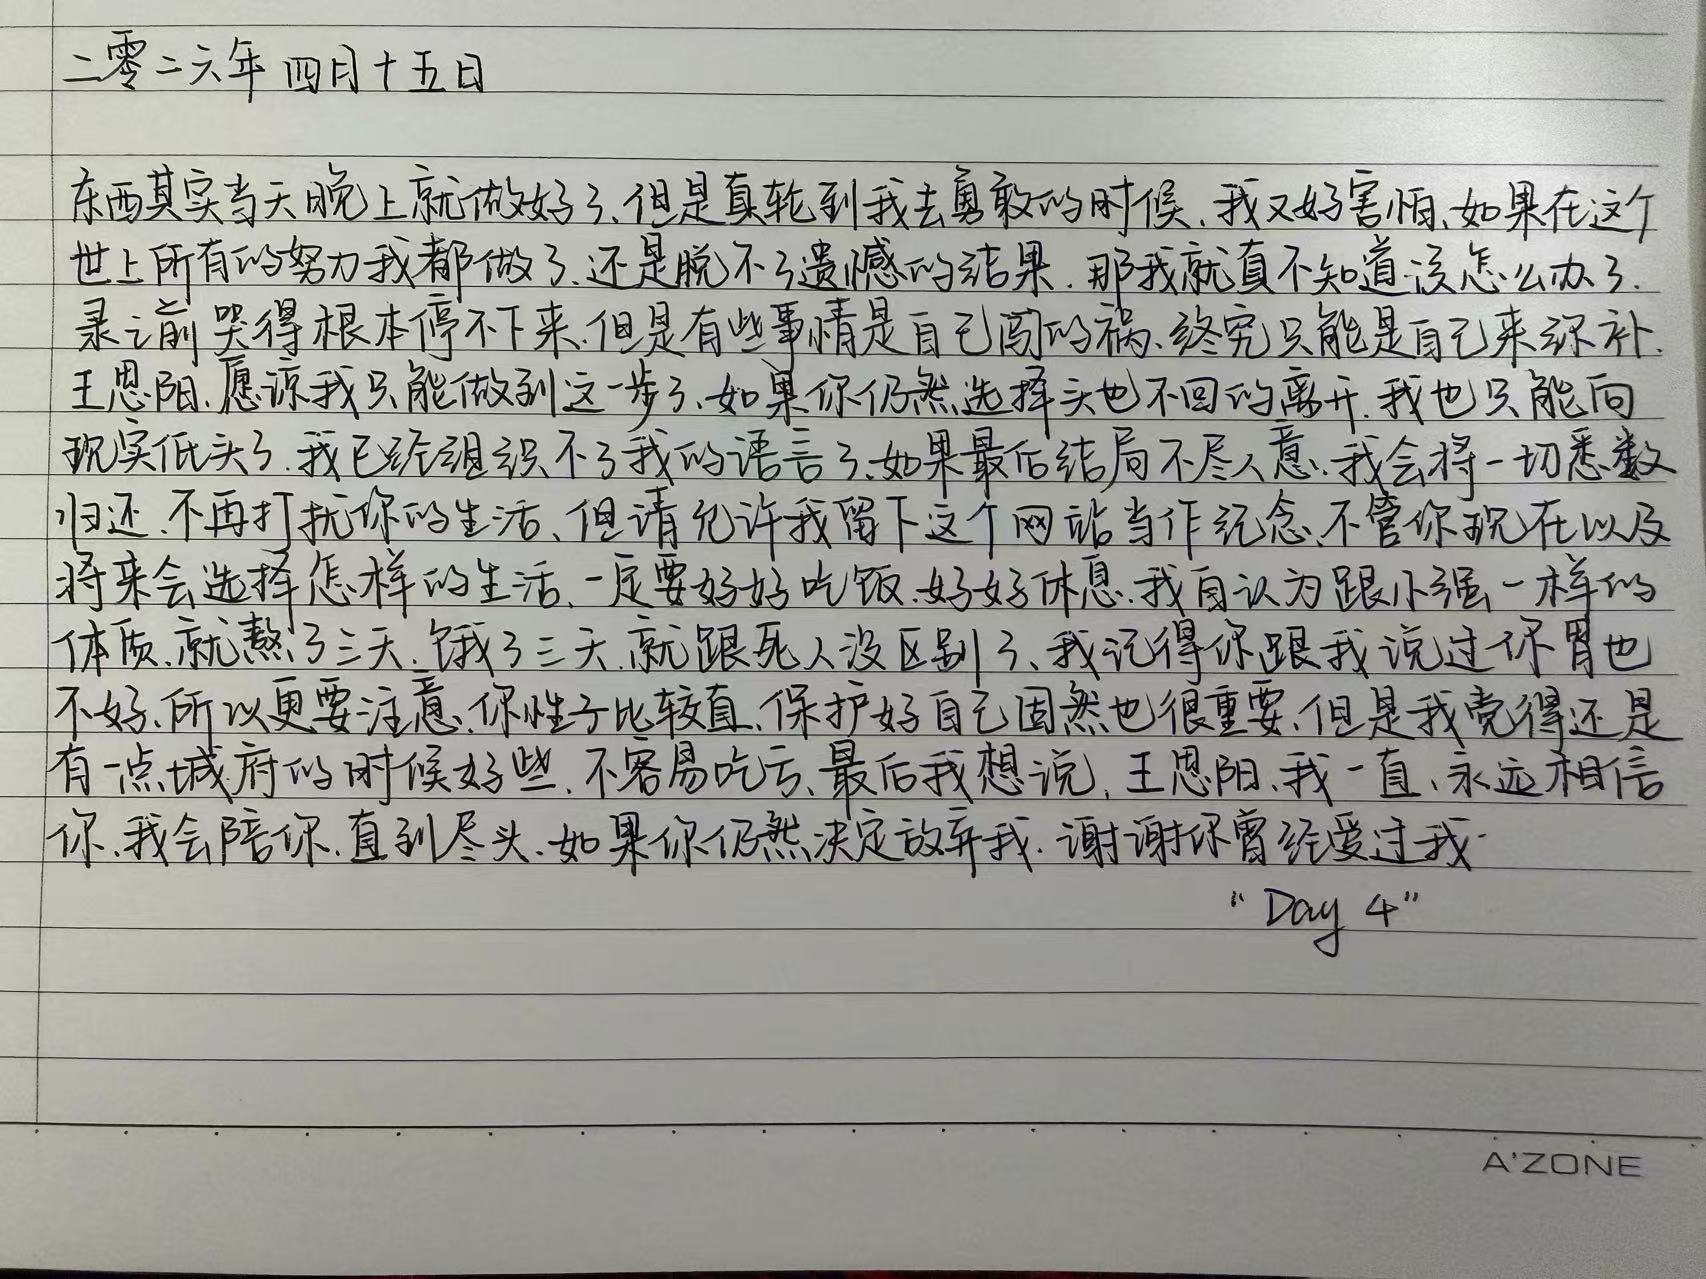 二零二六年 四月十五日
东西其实当天晚上就做好了、但是真轮到我去勇敢的时候、我又好害怕、如果在这个
世上所有的努力我都做了、还是脱不了遗憾的结果、那我就真不知道该怎么办了.
录之前哭得根本停不下来、但是有些事情是自己闯的祸、终究只能是自己来弥补.
王思阳、原谅我只能做到这一步了、如果你仍然选择头也不回的离开、我也只能向
现实低头了、我已经组织不了我的语言了、如果最后结局不尽人意、我会将一切悉数
归还、不再打扰你的生活、但请允许我留下这个网站当作纪念、不管你现在以及
将来会选择怎样的生活、一定要好好吃饭、好好休息、我自认为跟小强一样的
体质、就熬了三天、饿了三天、就跟死人没区别了、我记得你跟我说过你胃也
不好、所以更要注意、你性子比较直、保护好自己固然也很重要、但是我觉得还是
有一点城府的时候好些、不容易吃亏、最后我想说、王思阳、我一直、永远相信
你、我会陪你、直到尽头、如果你仍然决定放弃我、谢谢你曾经爱过我.
“Day 4”
A'ZONE